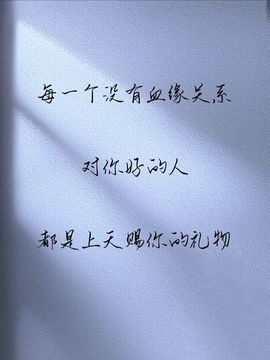 每一个没有血缘关系
对你好的人
都是上天赐你的礼物